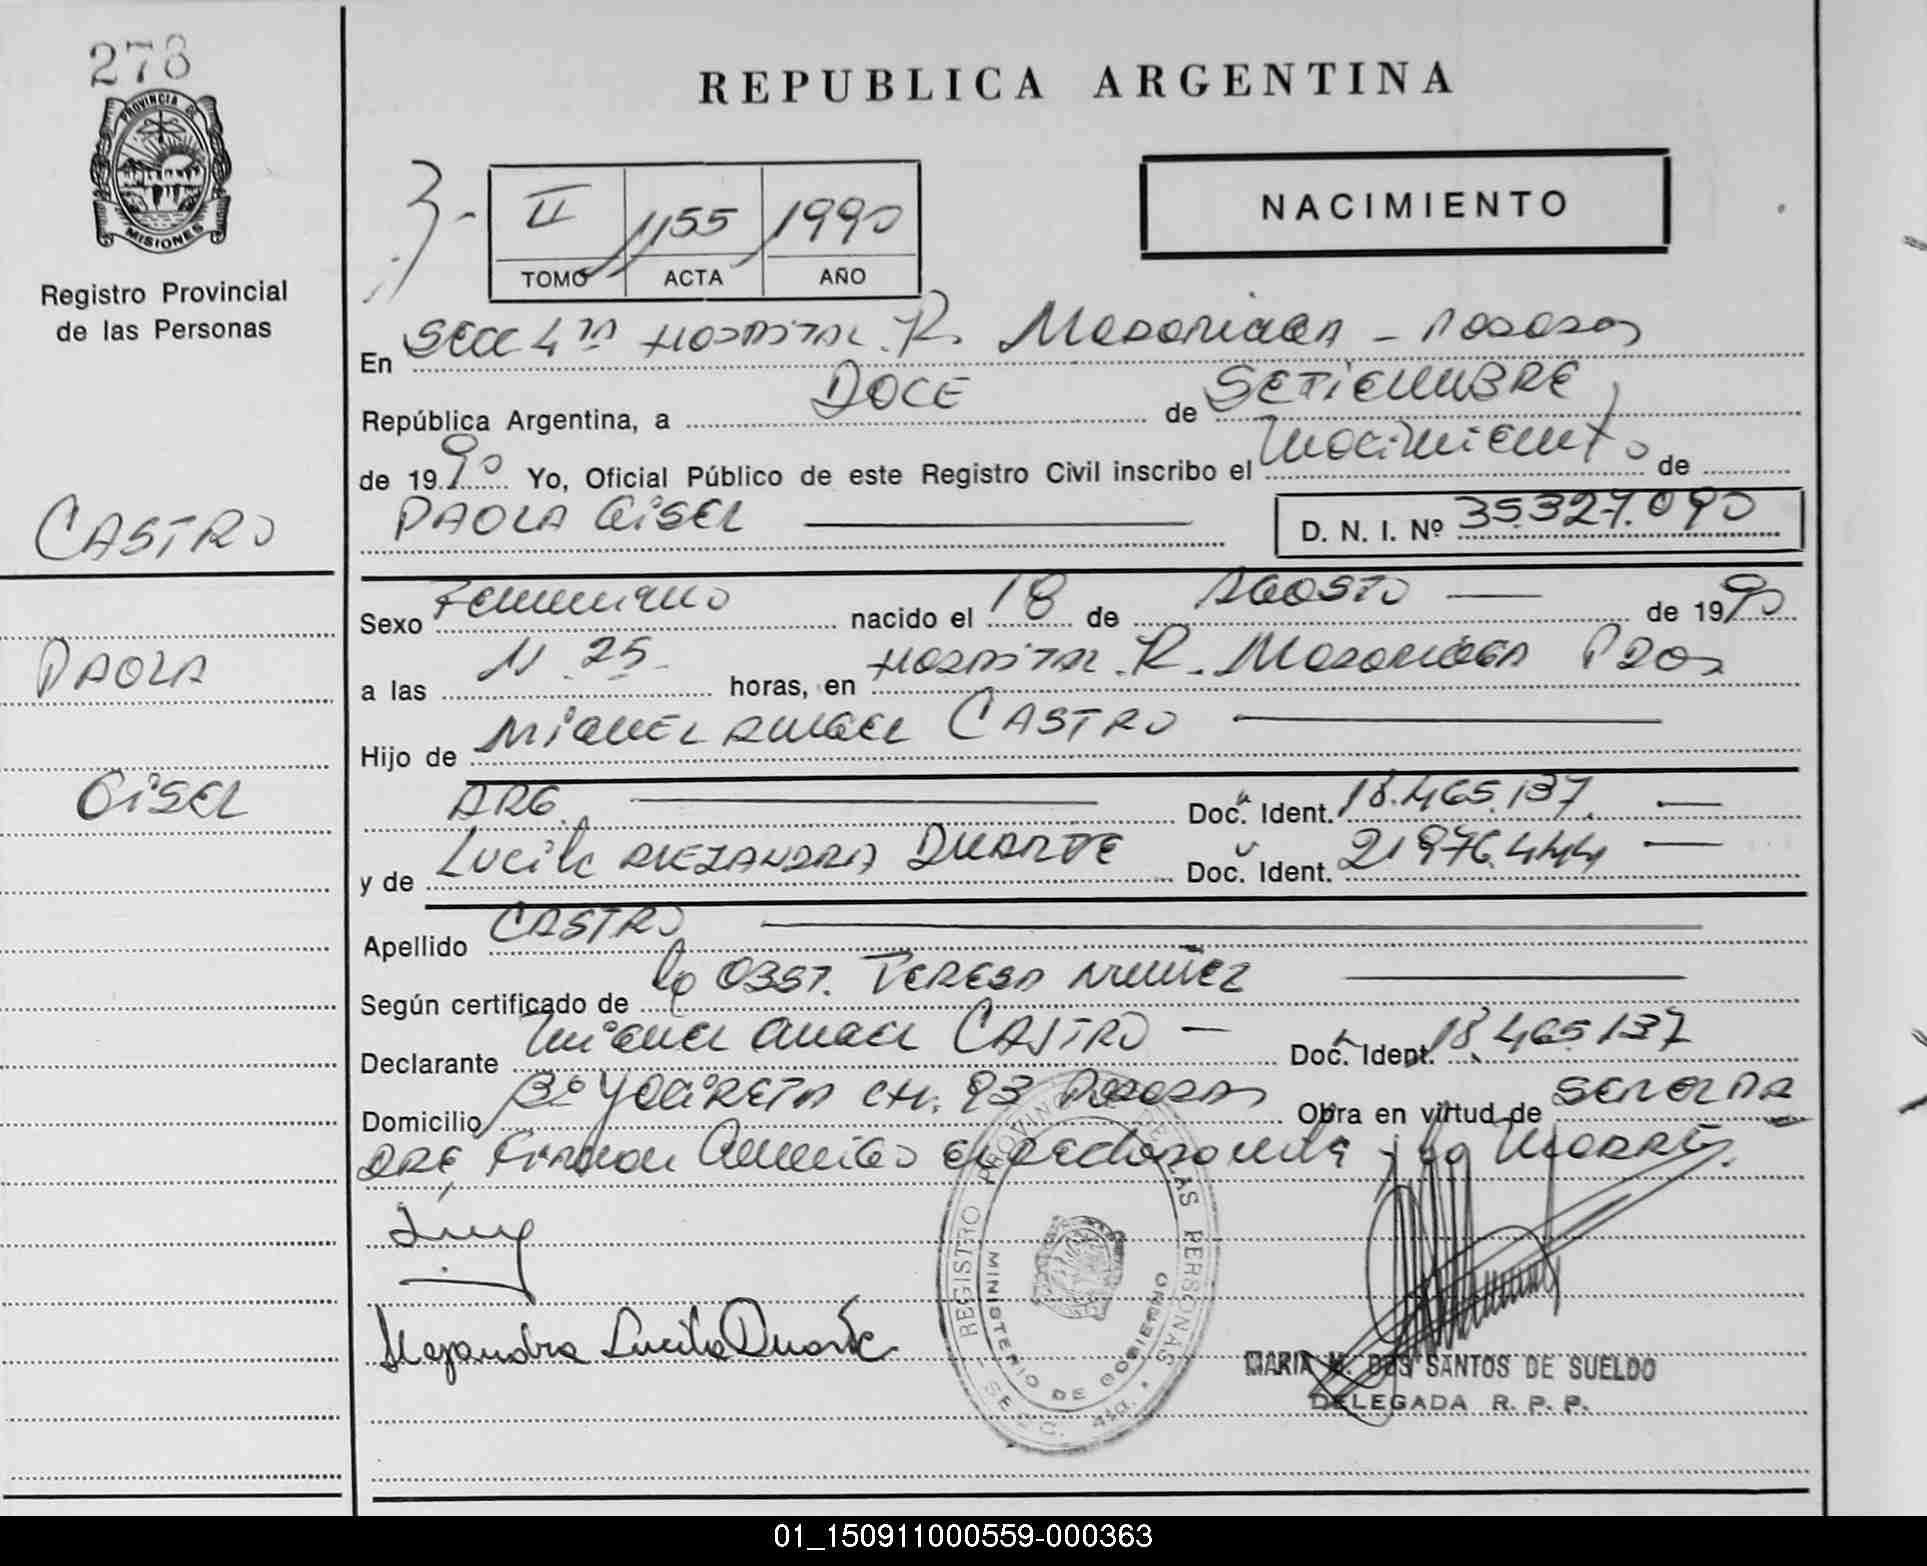 278
PROVINCIA DE
MISIONES
Registro Provincial
de las Personas
CASTRO
PAOLA
GISEL
REPUBLICA ARGENTINA
II 1155 1990
TOMO ACTA AÑO
NACIMIENTO
En SECC 4ta HOSPITAL. R. MADARIAGA - POSADAS
República Argentina, a DOCE de SETIEMBRE
de 1990 Yo, Oficial Público de este Registro Civil inscribo el nacimiento de
PAOLA GISEL D. N. I. Nº 35.327.090
Sexo Femenino nacido el 18 de AGOSTO de 1990
a las 11.25 horas, en HOSPITAL. R. MADARIAGA Pdas
Hijo de MIGUEL ANGEL CASTRO
ARG. Doc. Ident. 18.465.137
y de Lucila ALEJANDRA DUARTE Doc. Ident. 21976.444
Apellido CASTRO
Según certificado de la OBST. TERESA NUÑEZ
Declarante Miguel Angel CASTRO Doc. Ident. 18.465.137
Domicilio Bº YACIRETA CH. 93 POSADAS Obra en virtud de
Firman Conmigo el declarante y la Madre.
Alejandra Lucila Duarte
REGISTRO PROVINCIAL DE LAS PERSONAS
MINISTERIO DE GOBIERNO
SECC. 4ta.
MARIA M. DOS SANTOS DE SUELDO
DELEGADA R. P. P.
01_150911000559-000363